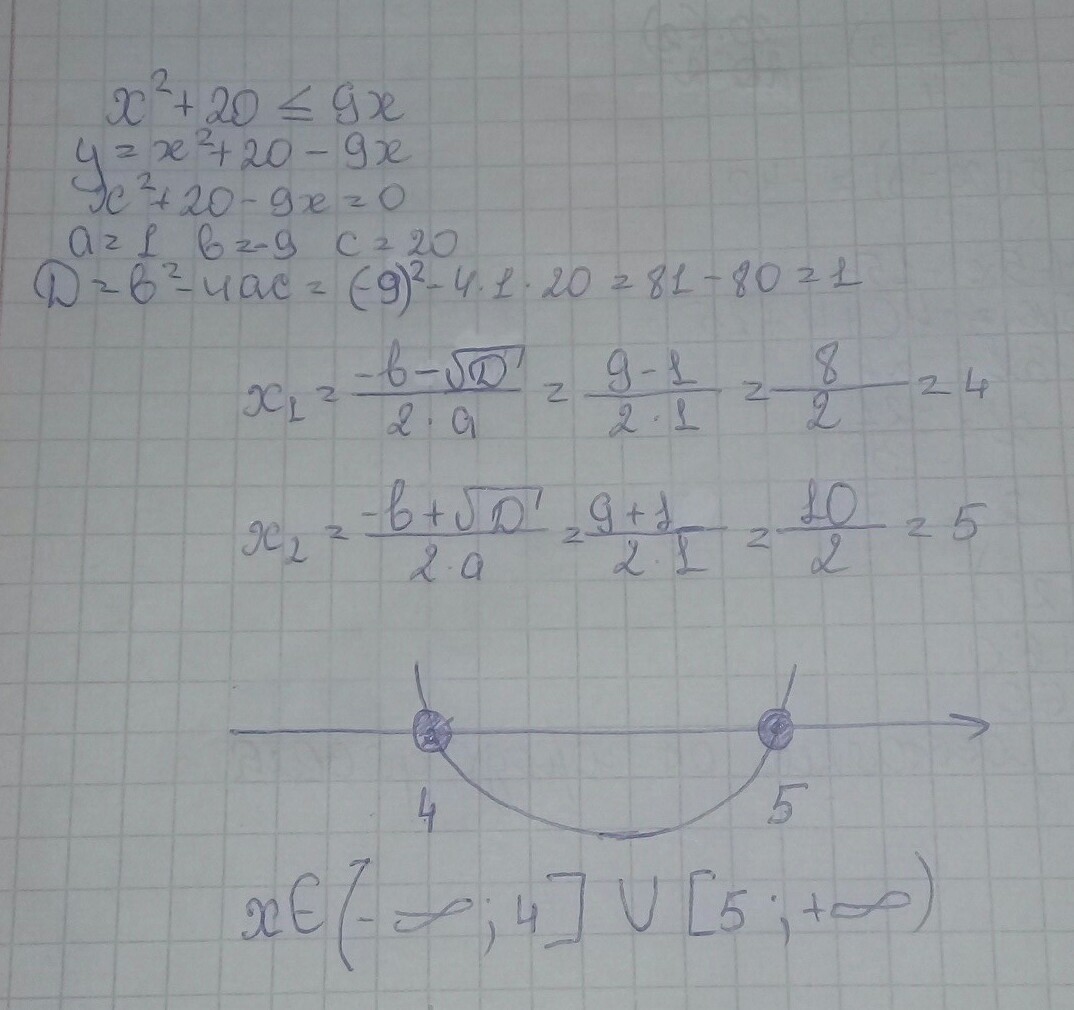 x² + 20 ≤ 9x
y = x² + 20 - 9x
x² + 20 - 9x = 0
a = 1 в = -9 c = 20
D = в² - 4ac = (-9)² - 4·1·20 = 81 - 80 = 1
x₁ = (-в - √D)/(2·a) = (9 - 1)/(2·1) = 8/2 = 4
x₂ = (-в + √D)/(2·a) = (9 + 1)/(2·1) = 10/2 = 5
4 5
x∈(-∞; 4] ∪ [5; +∞)